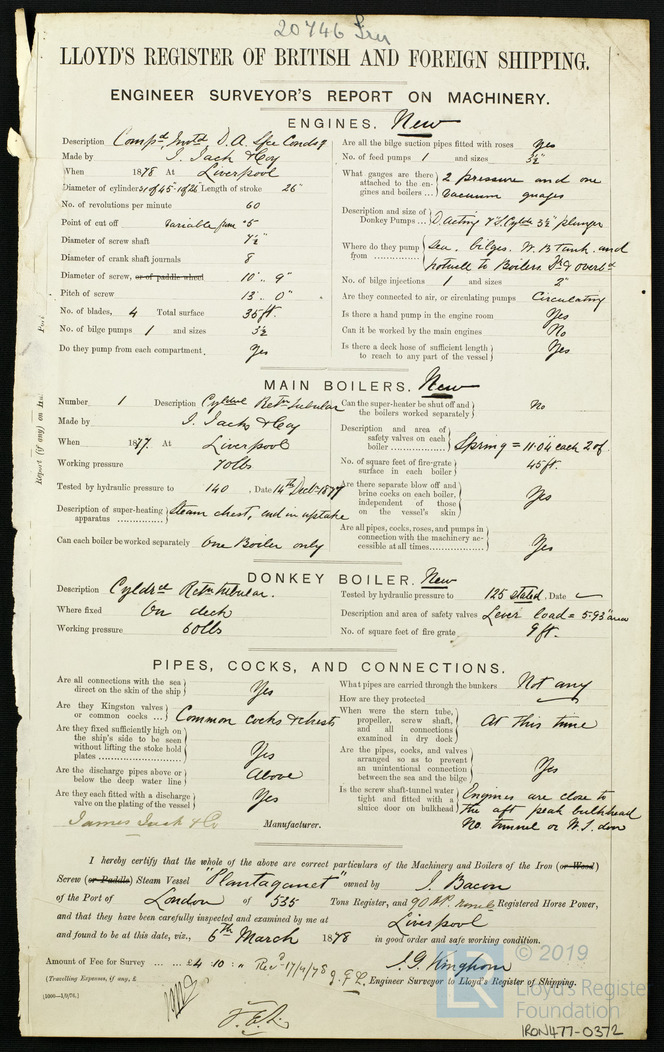 20746 Irn
LLOYD'S REGISTER OF BRITISH AND FOREIGN SHIPPING.
ENGINEER SURVEYOR'S REPORT ON MACHINERY.
ENGINES. New
Description Compd Invtd D.A. Sfce Condsg
Made by J. Jack & Coy
When 1878 At Liverpool
Diameter of cylinders 1 of 45" 1 of 26" Length of stroke 26"
No. of revolutions per minute 60
Point of cut off Variable from .5
Diameter of screw shaft 7½"
Diameter of crank shaft journals 8
Diameter of screw, or of paddle wheel 10' . 9"
Pitch of screw 13' . 0"
No. of blades, 4 Total surface 35 ft.
No. of bilge pumps 1 and sizes 3½
Do they pump from each compartment. Yes
Are all the bilge suction pipes fitted with roses Yes
No. of feed pumps 1 and sizes 3½"
What gauges are there attached to the engines and boilers ... 2 pressure and one vacuum guages
Description and size of Donkey Pumps ... D. acting 7" S. Cyldr 3½" plunger
Where do they pump from ............ Sea. bilges. W.B Tank. and hotwell to Boilers. Dk & overbd
No. of bilge injections 1 and sizes 2"
Are they connected to air, or circulating pumps Circulating
Is there a hand pump in the engine room Yes
Can it be worked by the main engines No
Is there a deck hose of sufficient length to reach to any part of the vessel Yes
Report (if any) on
MAIN BOILERS. New
Number 1 Description Cyldrcl Retn tubular
Made by J. Jack & Coy
When 1877. At Liverpool
Working pressure 70 lbs
Tested by hydraulic pressure to 140 . Date 14th Decr 1877
Description of super-heating apparatus ............... Steam chest, end in uptake
Can each boiler be worked separately One Boiler only
Can the super-heater be shut off and the boilers worked separately No
Description and area of safety valves on each boiler ............... Spring = 11.04" each 2 of.
No. of square feet of fire-grate surface in each boiler 45 ft.
Are there separate blow off and brine cocks on each boiler, independent of those on the vessel's skin Yes
Are all pipes, cocks, roses, and pumps in connection with the machinery accessible at all times............ Yes
DONKEY BOILER. New
Description Cyldrcl Retn tubular.
Where fixed On deck
Working pressure 60 lbs
Tested by hydraulic pressure to 125 stated. Date
Description and area of safety valves Lever load = 5.93" area
No. of square feet of fire grate 9 ft.
PIPES, COCKS, AND CONNECTIONS.
Are all connections with the sea direct on the skin of the ship Yes
Are they Kingston valves or common cocks ... Common cocks & chests
Are they fixed sufficiently high on the ship's side to be seen without lifting the stoke hold plates ..................... Yes
Are the discharge pipes above or below the deep water line Above
Are they each fitted with a discharge valve on the plating of the vessel Yes
What pipes are carried through the bunkers Not any
How are they protected
When were the stern tube, propeller, screw shaft, and all connections examined in dry dock At this time
Are the pipes, cocks, and valves arranged so as to prevent an unintentional connection between the sea and the bilge Yes
Is the screw shaft-tunnel water tight and fitted with a sluice door on bulkhead Engines are close to the aft peak bulkhead No. tunnel or W.T. door
James Jack & Co Manufacturer.
I hereby certify that the whole of the above are correct particulars of the Machinery and Boilers of the Iron (or Wood)
Screw (or Paddle) Steam Vessel "Plantaganet" owned by J. Bacon
of the Port of London of 535 Tons Register, and 90 HP. Registered Horse Power,
and that they have been carefully inspected and examined by me at Liverpool
and found to be at this date, viz., 6th March 1878 in good order and safe working condition.
Amount of Fee for Survey ... ... ... £4 : 10 : " Recd 17/4/78 J. G. Kinghorn
(Travelling Expenses, if any, £ Engineer Surveyor to Lloyd's Register of Shipping.
(1000—1/9/76.)
© 2019
LR Lloyd's Register
Foundation
IRON477-0372